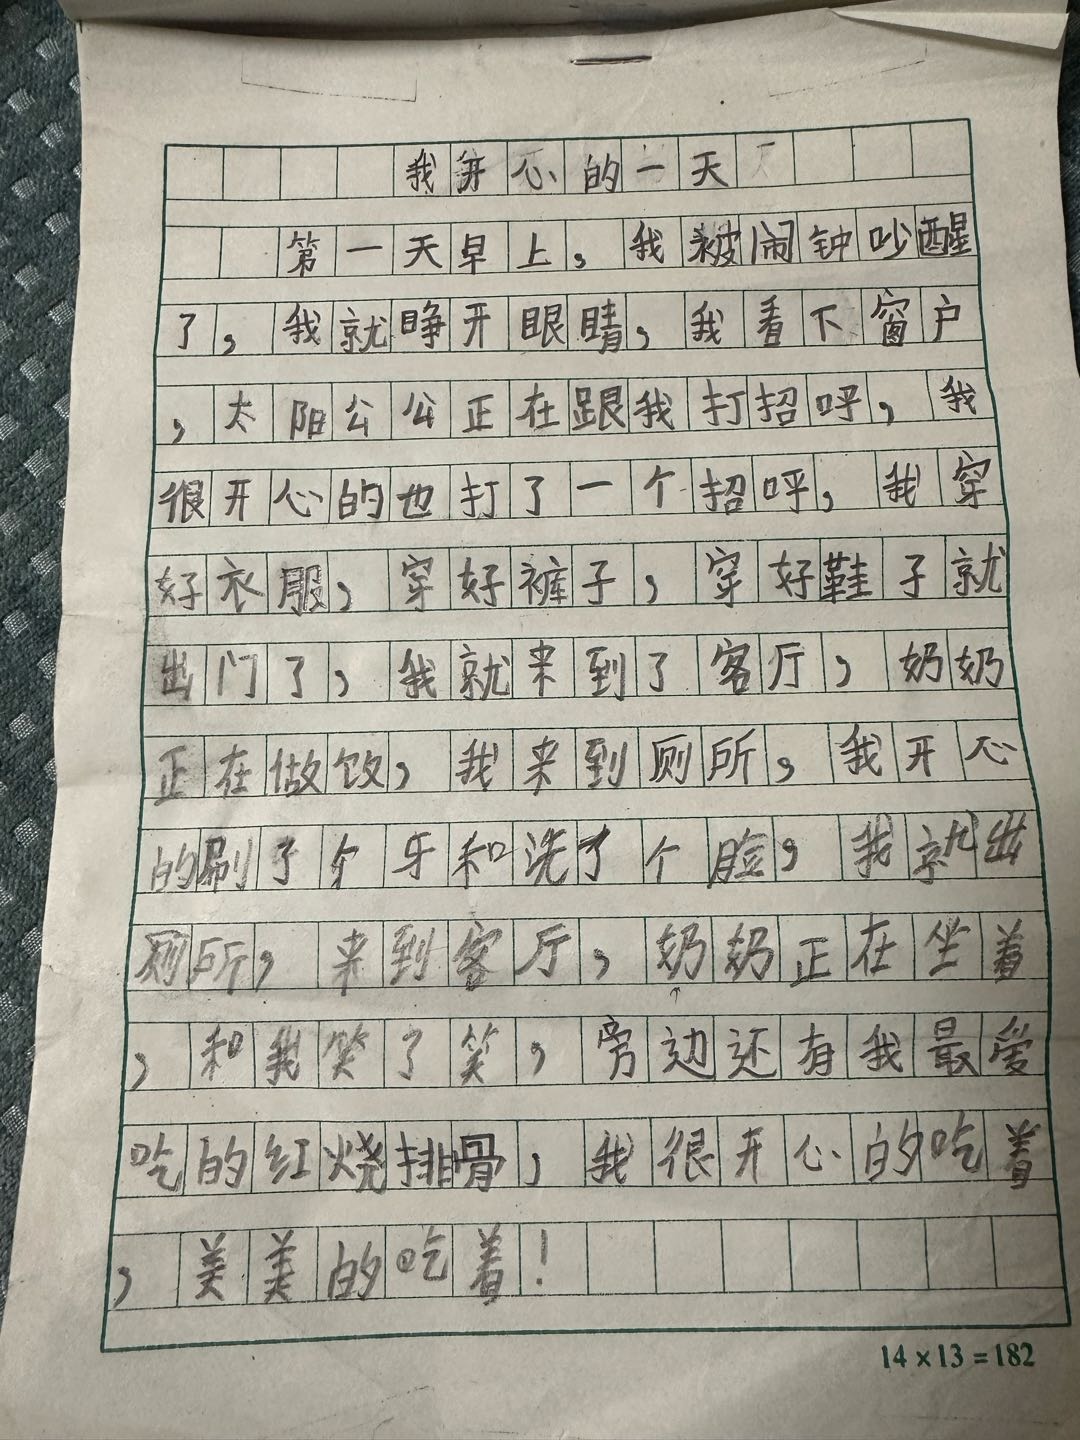 我开心的一天
第一天早上，我被闹钟吵醒
了，我就睁开眼睛，我看下窗户
，太阳公公正在跟我打招呼，我
很开心的也打了一个招呼，我穿
好衣服，穿好裤子，穿好鞋子就
出门了，我就来到了客厅，奶奶
正在做饭，我来到厕所，我开心
的刷了个牙和洗了个脸，我就出
厕所，来到客厅，奶奶正在坐着
，和我笑了笑，旁边还有我最爱
吃的红烧排骨，我很开心的吃着
，美美的吃着！
14×13=182